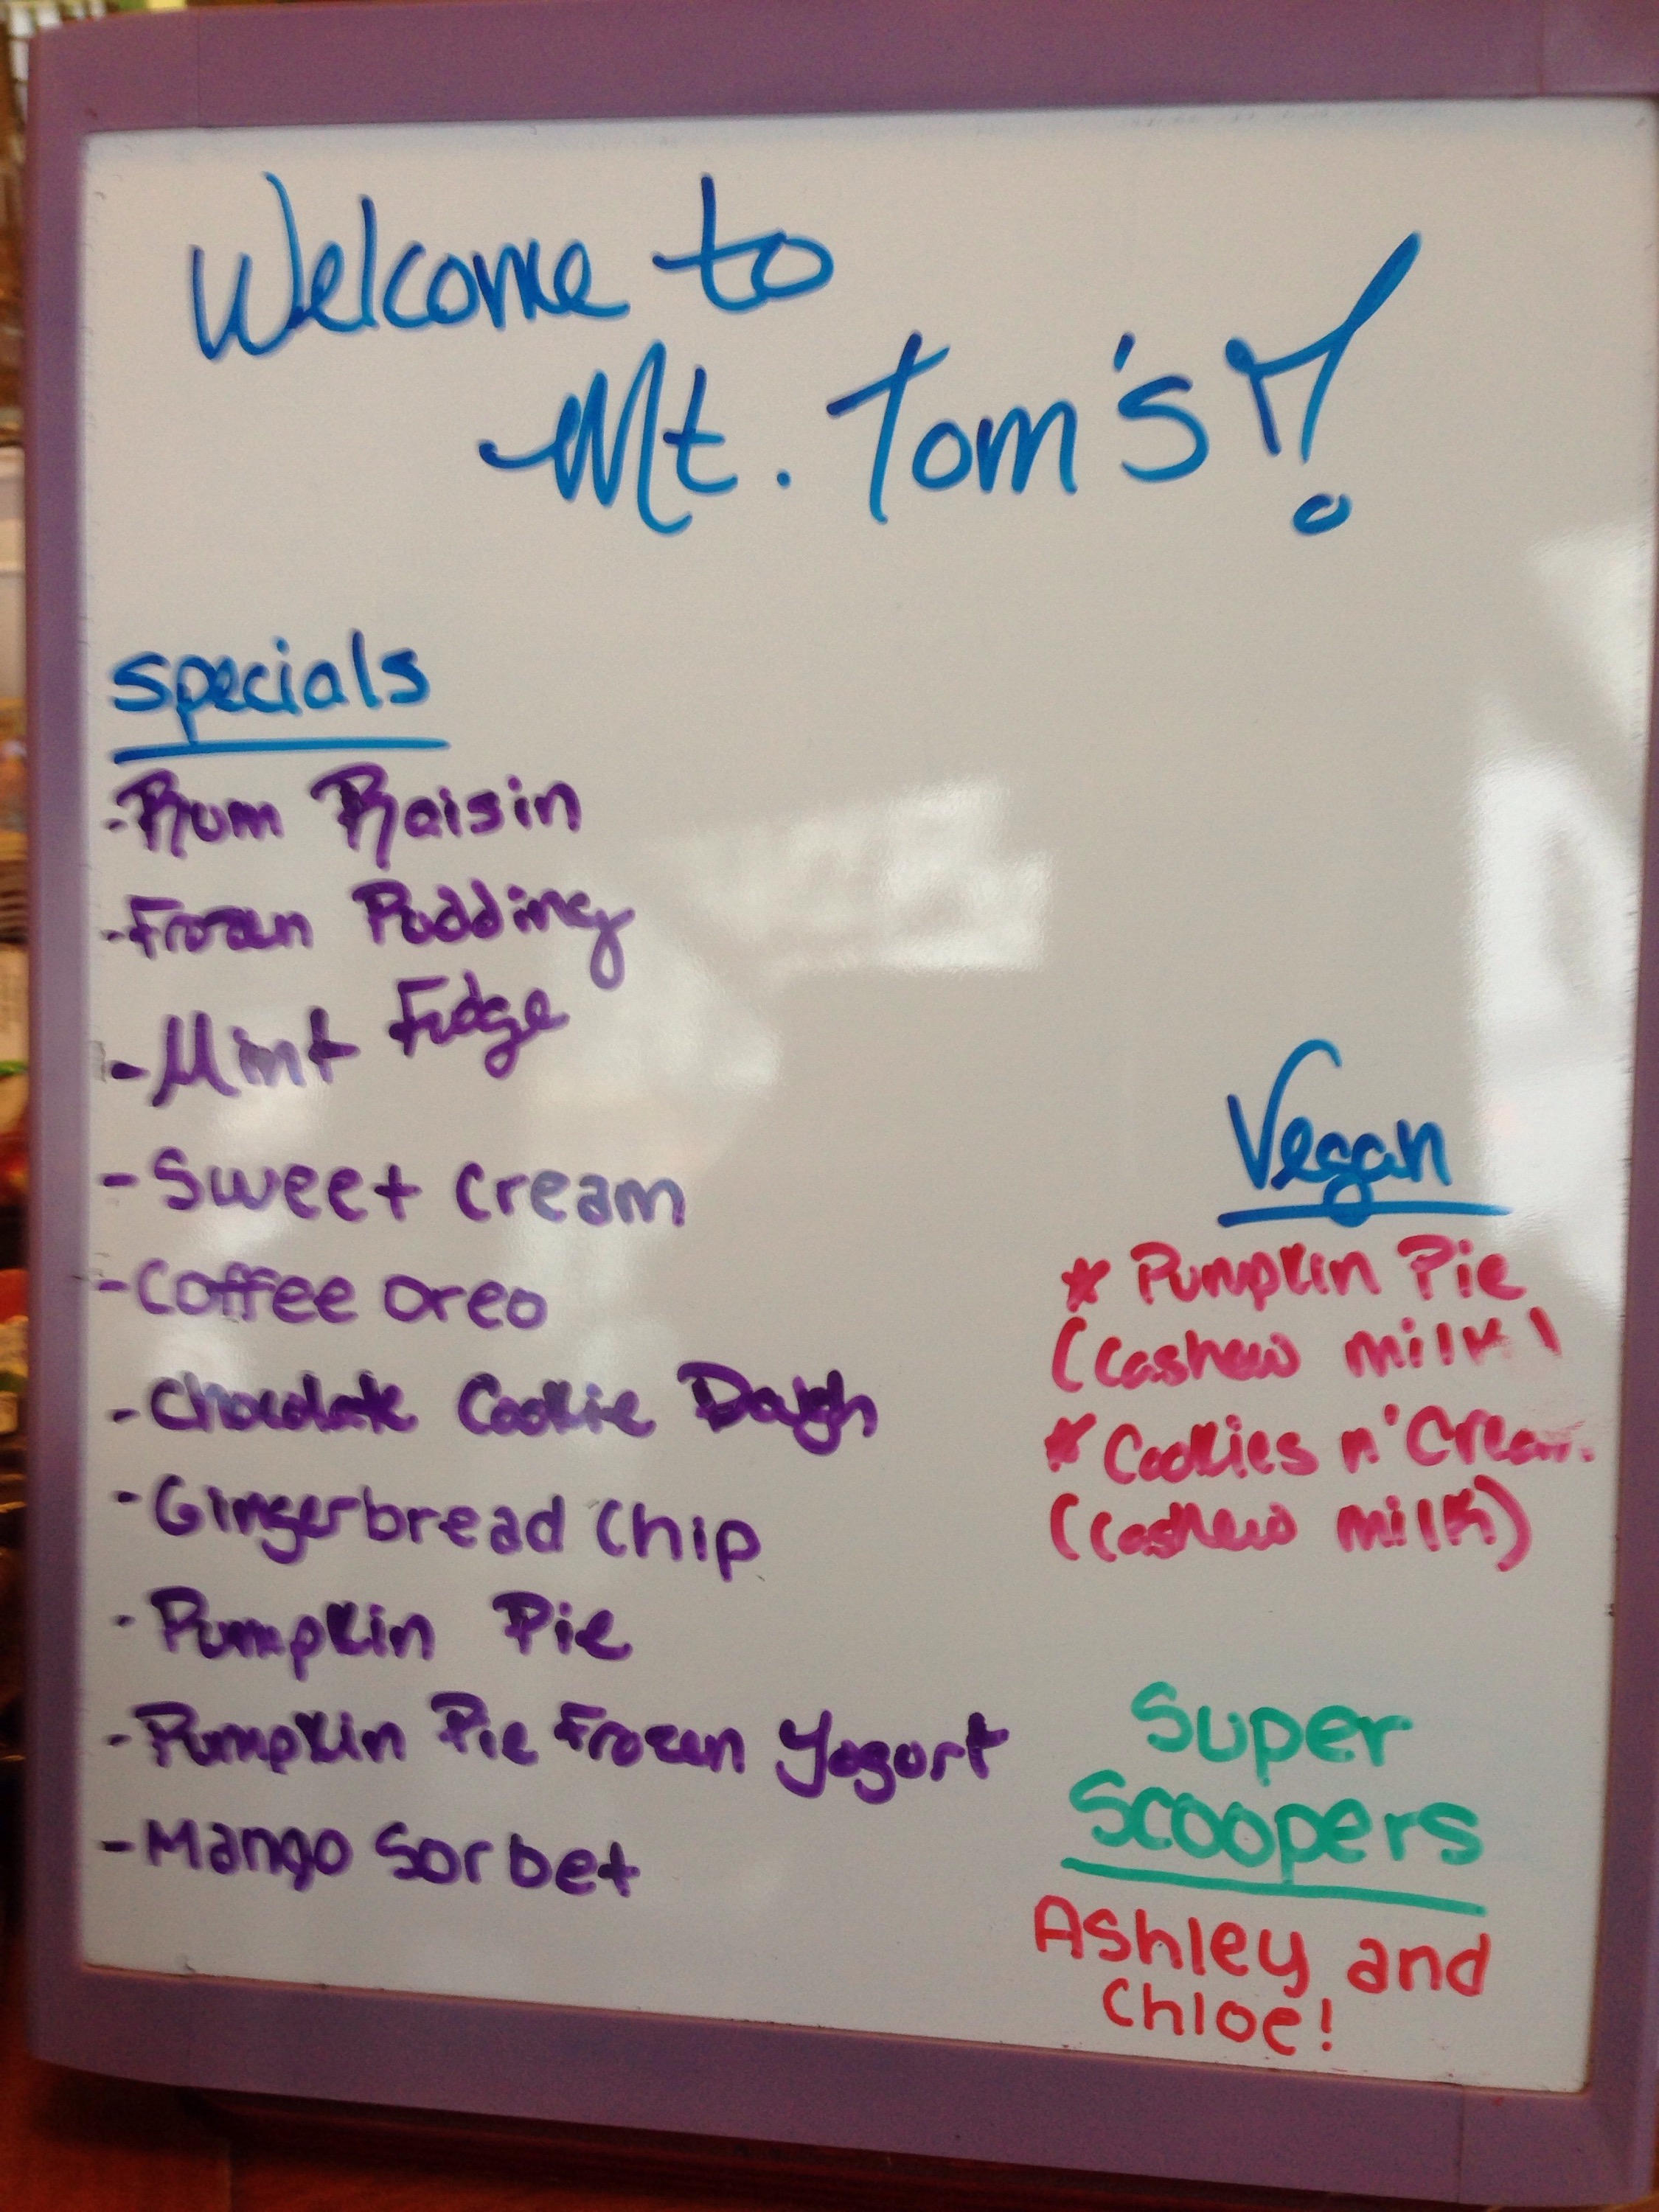 Welcome to
Mt. Tom's!
Specials
- Rum Raisin
- Frozen Pudding
- Mint Fudge
- Sweet Cream
- Coffee Oreo
- Chocolate Cookie Dough
- Gingerbread Chip
- Pumpkin Pie
- Pumpkin Pie Frozen Yogurt
- Mango Sorbet
Vegan
* Pumpkin Pie
(cashew milk)
* Cookies n' Cream
(cashew milk)
Super
Scoopers
Ashley and
Chloe!